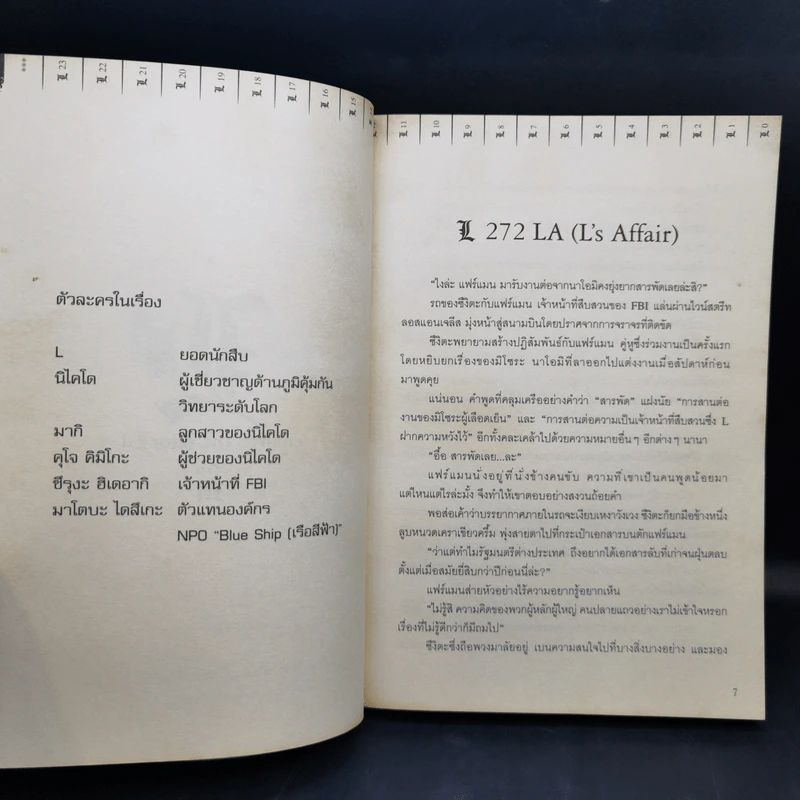 ***
L 23
L 22
L 21
L 20
L 19
L 18
L 17
L 16
L 15
ตัวละครในเรื่อง
L ยอดนักสืบ
นิไคโด ผู้เชี่ยวชาญด้านภูมิคุ้มกัน
วิทยาระดับโลก
มากิ ลูกสาวของนิไคโด
คุโจ คิมิโกะ ผู้ช่วยของนิไคโด
ซึรุงะ ฮิเดอากิ เจ้าหน้าที่ FBI
มาโตบะ ไดสึเกะ ตัวแทนองค์กร
NPO “Blue Ship (เรือสีฟ้า)”
L 11
L 10
L 9
L 8
L 7
L 6
L 5
L 4
L 3
L 2
L 1
L 0
L 272 LA (L’s Affair)
“ไงล่ะ แฟร์แมน มารับงานต่อจากนาโอมิคงยุ่งยากสารพัดเลยล่ะสิ?”
รถของซึงิตะกับแฟร์แมน เจ้าหน้าที่สืบสวนของ FBI แล่นผ่านไวน์สตรีท
ลอสแอนเจลีส มุ่งหน้าสู่สนามบินโดยปราศจากการจราจรที่ติดขัด
ซึงิตะพยายามสร้างปฏิสัมพันธ์กับแฟร์แมน คู่หูซึ่งร่วมงานเป็นครั้งแรก
โดยหยิบยกเรื่องของมิโซระ นาโอมิที่ลาออกไปแต่งงานเมื่อสัปดาห์ก่อน
มาพูดคุย
แน่นอน คำพูดที่คลุมเครืออย่างคำว่า “สารพัด” แฝงนัย “การสานต่อ
งานของมิโซระผู้เลือดเย็น” และ “การสานต่อความเป็นเจ้าหน้าที่สืบสวนซึ่ง L
ฝากความหวังไว้” อีกทั้งคละเคล้าไปด้วยความหมายอื่นๆ อีกต่างๆ นานา
“อื้อ สารพัดเลย...ละ”
แฟร์แมนนั่งอยู่ที่นั่งข้างคนขับ ความที่เขาเป็นคนพูดน้อยมา
แต่ไหนแต่ไรล่ะมั้ง จึงทำให้เขาตอบอย่างสงวนถ้อยคำ
พอส่อเค้าว่าบรรยากาศภายในรถจะเงียบเหงาวังเวง ซึงิตะก็ยกมือข้างหนึ่ง
ลูบหนวดเคราเขียวครึ้ม พุ่งสายตาไปที่กระเป๋าเอกสารบนตักแฟร์แมน
“ว่าแต่ทำไมรัฐมนตรีต่างประเทศ ถึงอยากได้เอกสารลับที่เก่าจนฝุ่นตลบ
ตั้งแต่เมื่อสมัยยี่สิบกว่าปีก่อนนี่ล่ะ?”
แฟร์แมนส่ายหัวอย่างไร้ความอยากรู้อยากเห็น
“ไม่รู้สิ ความคิดของพวกผู้หลักผู้ใหญ่ คนปลายแถวอย่างเราไม่เข้าใจหรอก
เรื่องที่ไม่รู้ดีกว่าก็มีถมไป”
ซึงิตะซึ่งถือพวงมาลัยอยู่ เบนความสนใจไปที่บางสิ่งบางอย่าง และมอง
7